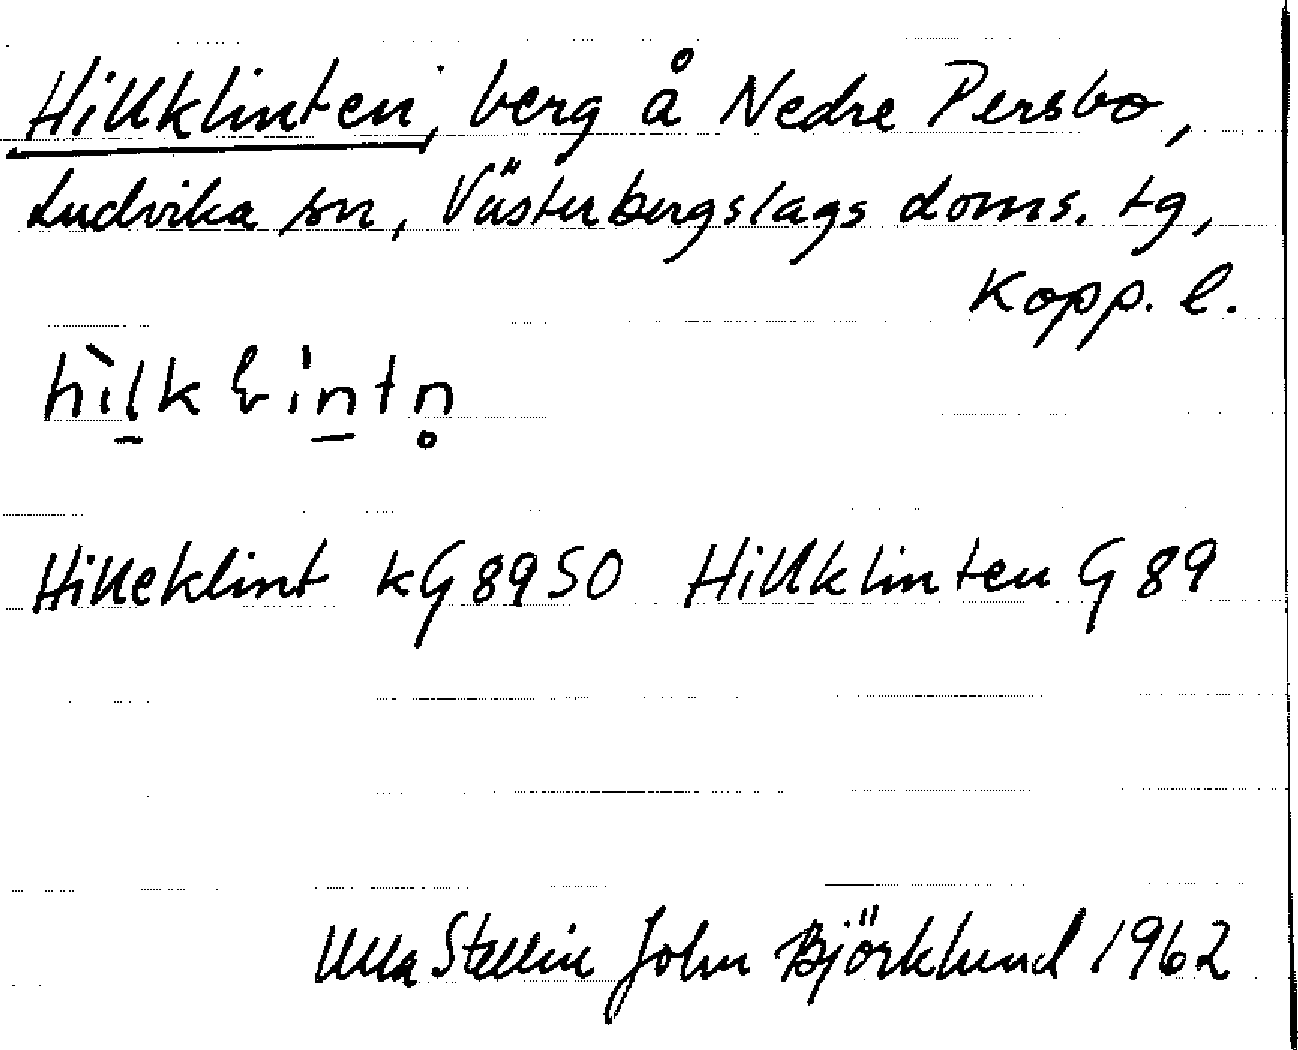 Hillklinten, berg å Nedre Persbo,
Ludvika sn, Västerbergslags doms. tg,
Kopp. l.
Hilleklint kG 89 SO Hillklinten G 89
Ulla Stellin John Björklund 1962